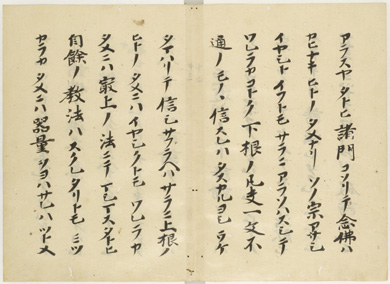 アラスヤ タトヒ 諸門コソリテ 念佛ハ
カヒナキヒトノタメナリ ソノ宗アサシ
イヤシトイフトモ サラニアラソハスシテ
ワレラカコトク 下根ノ凡夫 一文不
通ノモノヽ 信スレハ タスカルヨシ ウケ
タマハリテ 信シサフラヘハ サラニ上根ノ
ヒトノタメニハ イヤシクトモ ワレラカ
タメニハ 最上ノ法ニテマシマス タトヒ
自餘ノ教法ハスクレタリトモ ミツ
カラカタメニハ 器量オヨハサレハ ツトメ